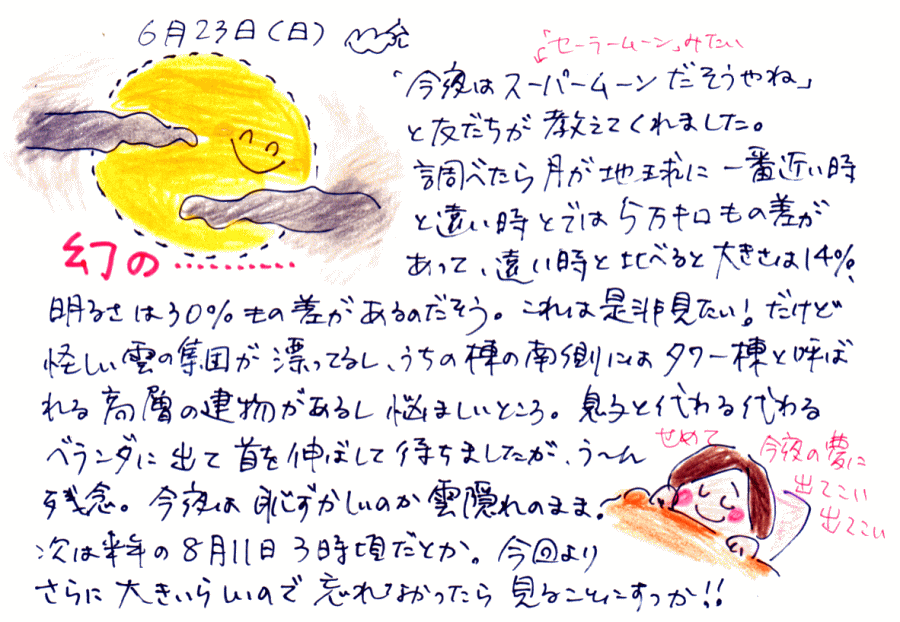 6月23日(日)
「セーラームーン」みたい
「今夜はスーパームーンだそうやね」
と友だちが教えてくれました。
調べたら月が地球に一番近い時
と遠い時とでは5万キロもの差が
あって、遠い時と比べると大きさは14%、
幻の…………
明るさは30%もの差があるのだそう。これは是非見たい!だけど
怪しい雲の集団が漂ってるし、うちの棟の南側にはタワー棟と呼ば
れる高層の建物があるし悩ましいところ。息子と代わる代わる
ベランダに出て首を伸ばして待ちましたが、う〜ん
残念。今夜は恥ずかしいのか雲隠れのまま。
次は来年の8月11日3時頃だとか。今回より
さらに大きいらしいので忘れなかったら見ることにすっか!!
せめて
今夜の夢に
出てこい
出てこい